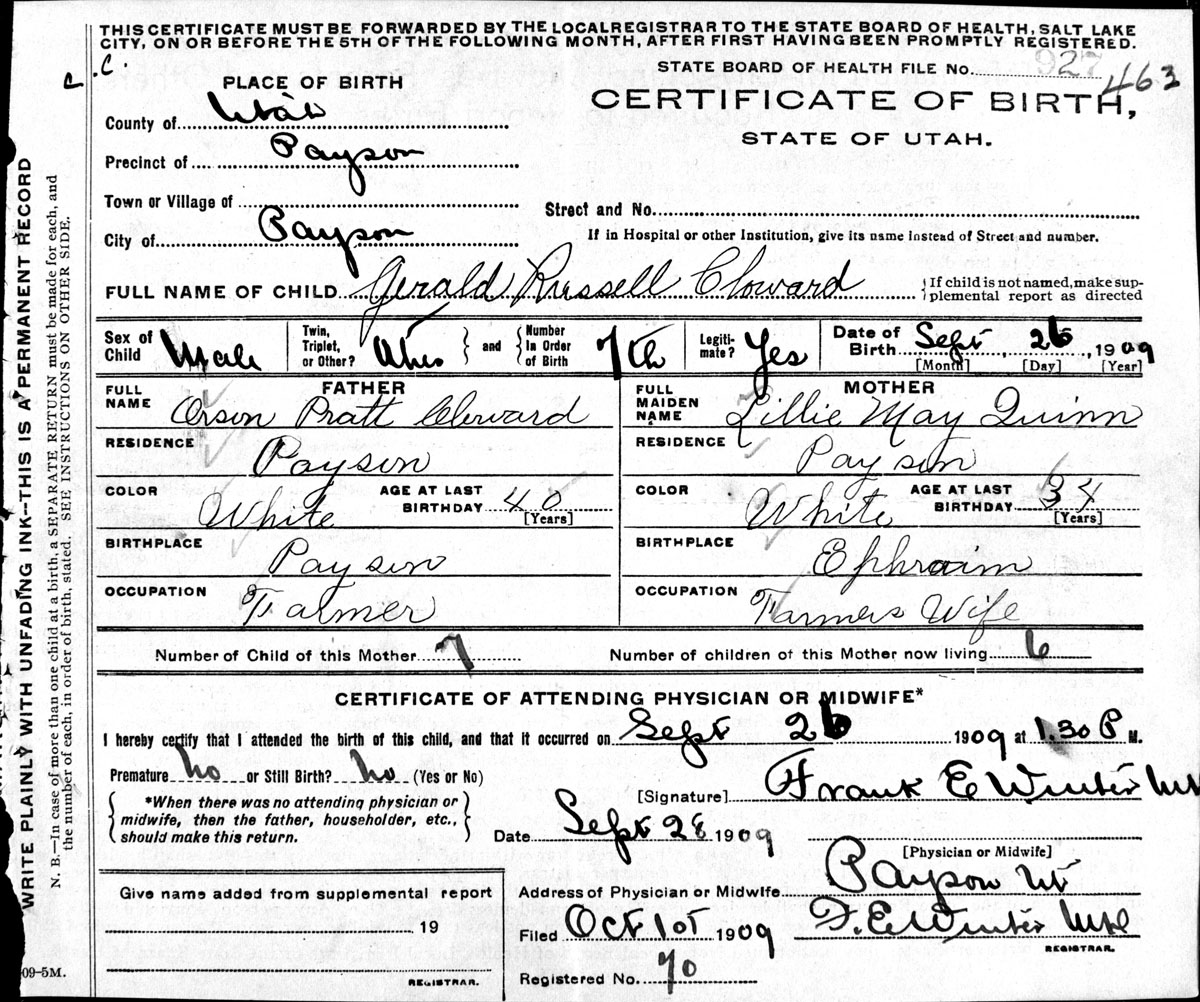 THIS CERTIFICATE MUST BE FORWARDED BY THE LOCAL REGISTRAR TO THE STATE BOARD OF HEALTH, SALT LAKE
CITY, ON OR BEFORE THE 5TH OF THE FOLLOWING MONTH, AFTER FIRST HAVING BEEN PROMPTLY REGISTERED.
STATE BOARD OF HEALTH FILE No. 927 463
PLACE OF BIRTH
CERTIFICATE OF BIRTH,
STATE OF UTAH.
County of Utah
Precinct of Payson
Town or Village of
City of Payson
Street and No.
If in Hospital or other Institution, give its name instead of Street and number.
FULL NAME OF CHILD Gerald Russell Cloward
If child is not named, make sup-
plemental report as directed
Sex of Child Male
Twin, Triplet, or Other?
and
Number In Order of Birth 7th
Legiti-mate? Yes
Date of Birth Sept 26, 1909
[Month] [Day] [Year]
FATHER
FULL NAME Orson Pratt Cloward
RESIDENCE Payson
COLOR White AGE AT LAST BIRTHDAY 40 [Years]
BIRTHPLACE Payson
OCCUPATION Farmer
MOTHER
FULL MAIDEN NAME Lillie May Quinn
RESIDENCE Payson
COLOR White AGE AT LAST BIRTHDAY 34 [Years]
BIRTHPLACE Ephraim
OCCUPATION Farmers Wife
Number of Child of this Mother 7 Number of children of this Mother now living 6
CERTIFICATE OF ATTENDING PHYSICIAN OR MIDWIFE*
I hereby certify that I attended the birth of this child, and that it occurred on Sept 26 1909 at 1.30 P M.
Premature no or Still Birth? no (Yes or No)
*When there was no attending physician or
midwife, then the father, householder, etc.,
should make this return.
[Signature] Frank E Winter
Date Sept 28 1909
[Physician or Midwife]
Address of Physician or Midwife Payson Ut
Filed Oct 1st 1909 F. E. Winter
REGISTRAR.
Registered No. 70
Give name added from supplemental report
19
REGISTRAR.
09-5M.
WRITE PLAINLY WITH UNFADING INK--THIS IS A PERMANENT RECORD
N. B.—In case of more than one child at a birth, a SEPARATE RETURN must be made for each, and
the number of each, in order of birth, stated. SEE INSTRUCTIONS ON OTHER SIDE.